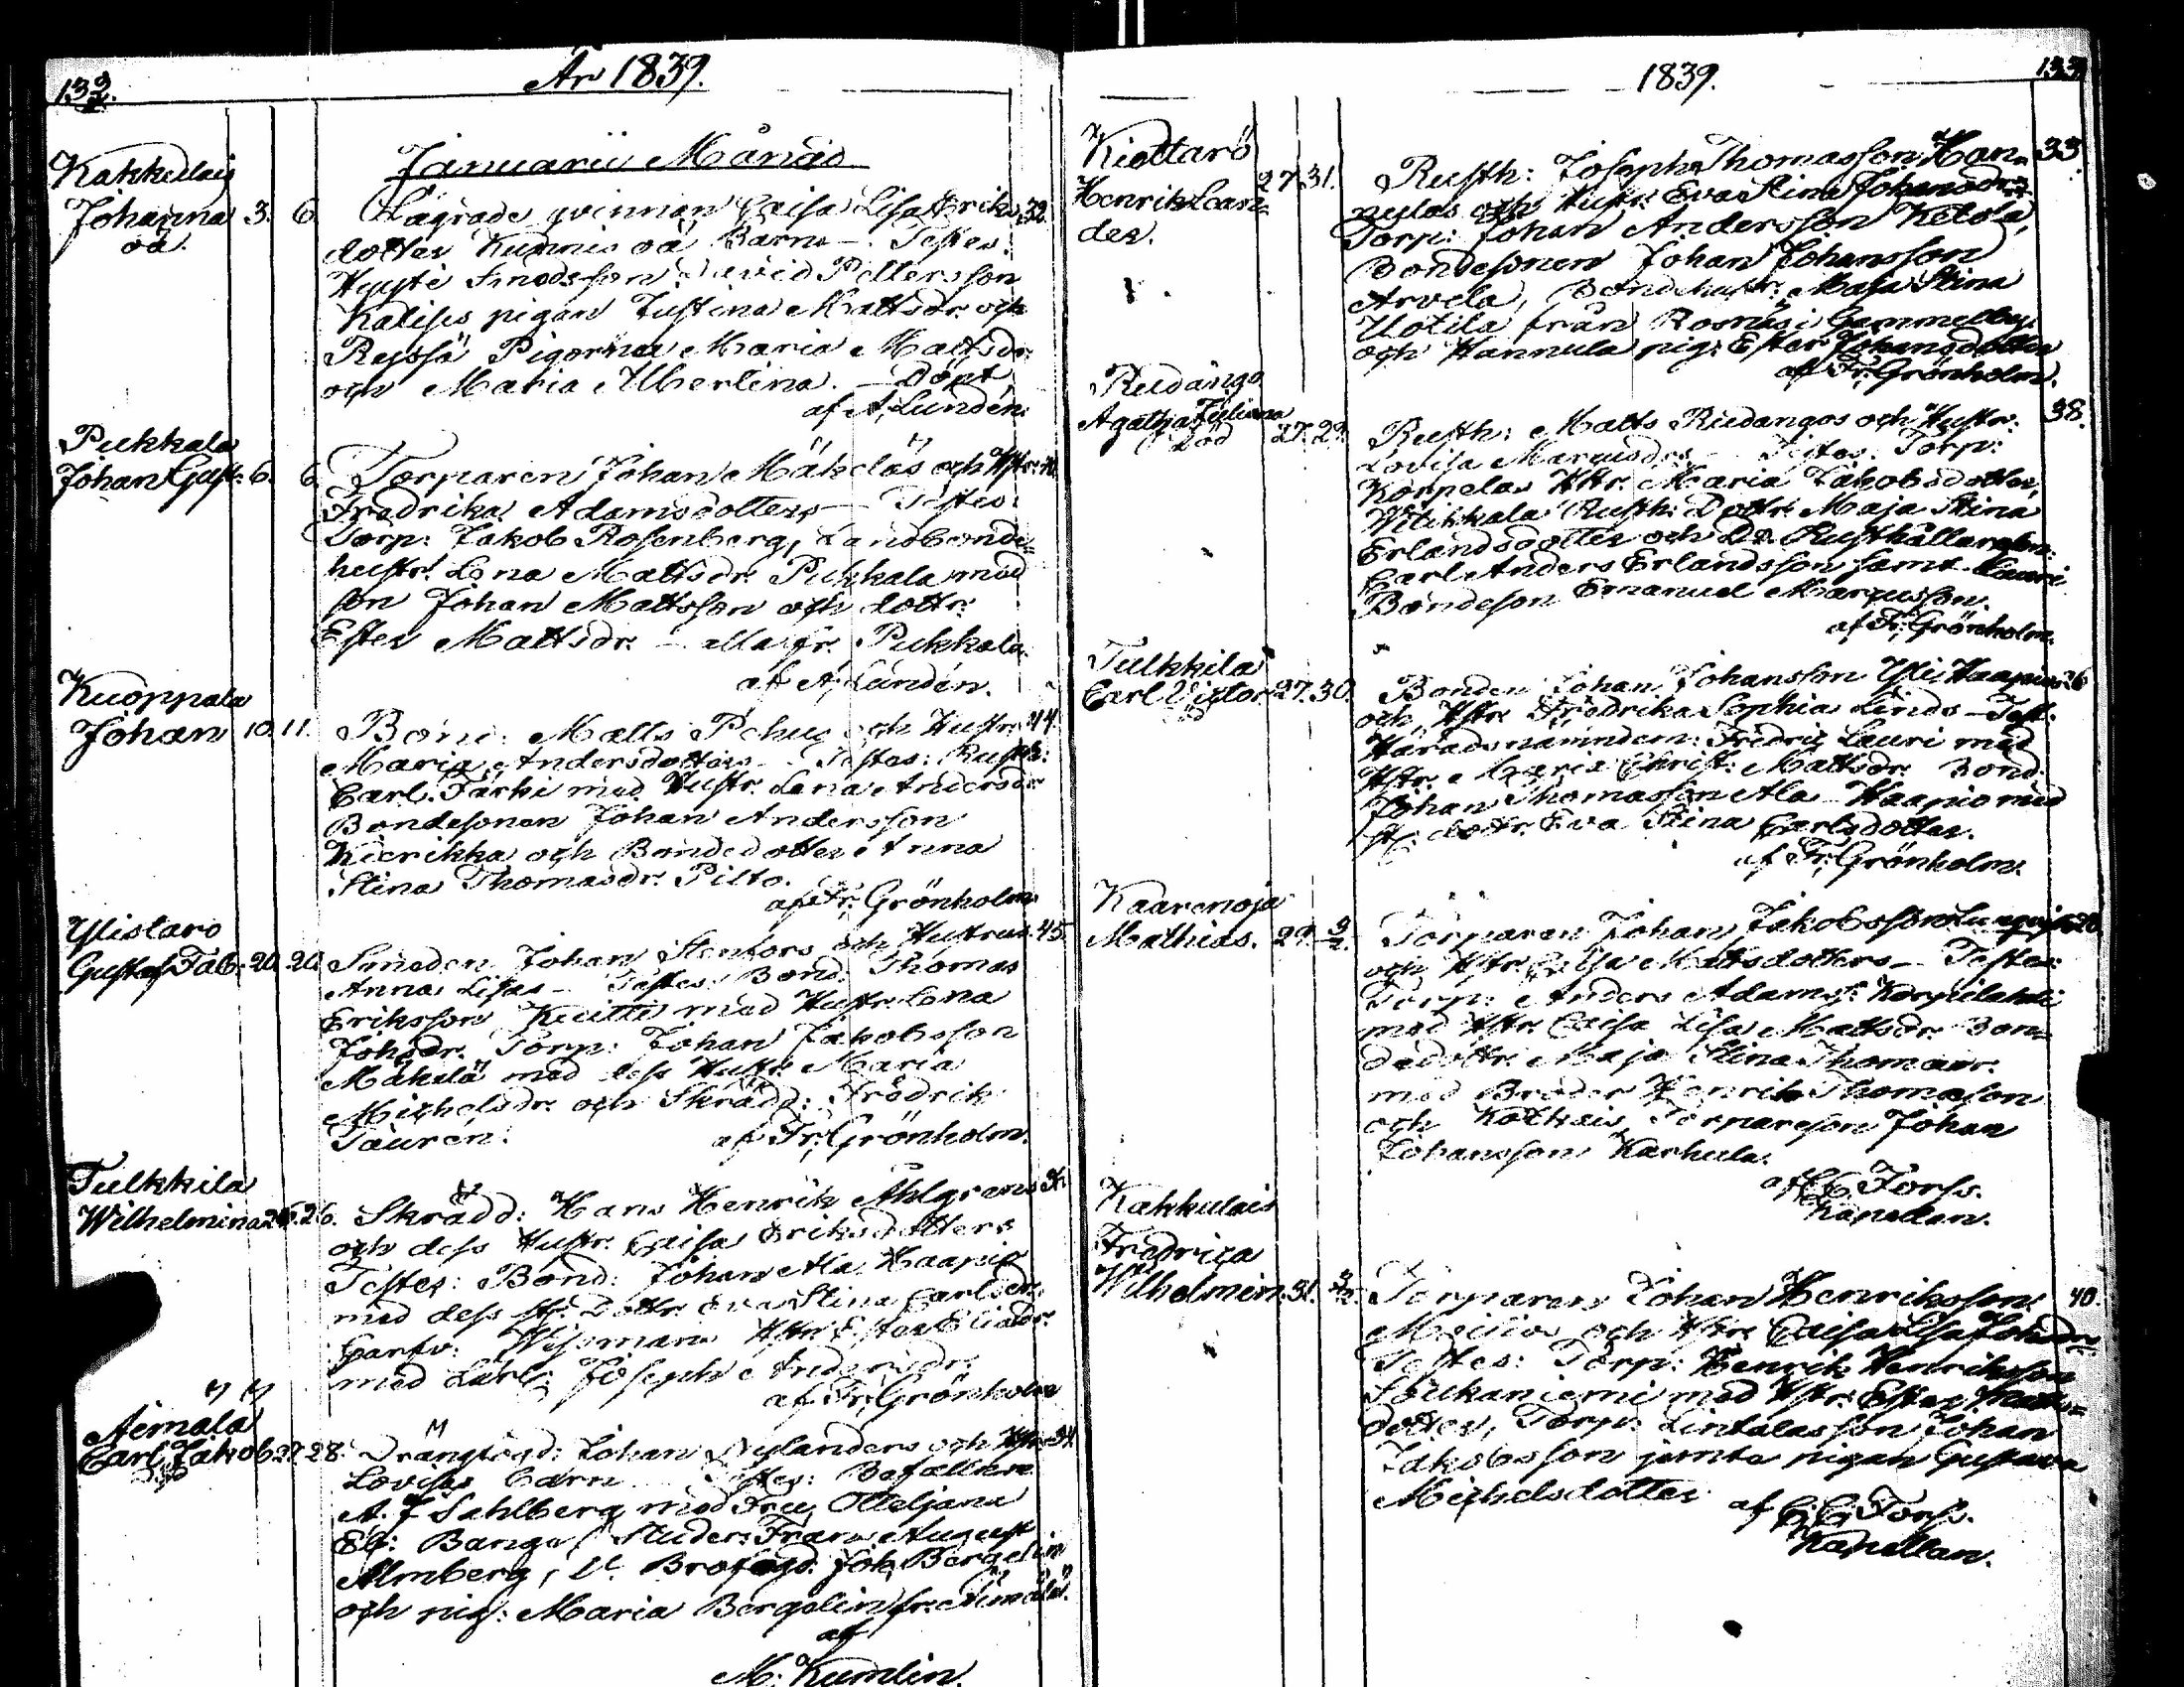 132.
År 1839.
Januarii Månad
Kakkulais
Johanna 3. 6. Lägrade qvinnan Caisa Lisa Eriks 32.
oä. dotter Kunnis oä Barn — Testes:
Hyyti Smedsson David Pettersson
Katisis pigan Justina Mattsdr. och
Reyssä Pigorna Maria Mattsdr.
och Maria Albertina. — Döpt
af A. Lundén.
Pukkala
Johan Gust: 6. 6. Torparen Johan Mäkeläs och Hstr:
Fredrika Adamsdotters — Testes:
Torp: Jakob Rosenberg, Landbonde
hustr: Lena Mattsdr. Pukkala med
son Johan Mattsson och dottr:
Ester Mattsdr. — alla fr. Pukkala.
af A. Lundén.
Kuoppala
Johan 10. 11. Bond: Matts Pehus och Hustr: 44.
Maria Andersdotters — Testes: Rusth:
Carl Järki med Hustr. Lena Andersdr.
Bondesonen Johan Andersson
Kierikka och Bondedotter Anna
Stina Thomasdr. Pilto.
af Fr. Grönholm.
Ylistaro
Gustaf Fab. 20. 20. Smeden Johan Stenfors och Hustrus 45.
Anna Lisas — Testes: Bond: Thomas
Eriksson Kuitti med Hustr. Lena
Johsdr. Torp: Johan Jakobsson
Mäkelä med dess Hustr: Maria
Michelsdr. och Skrädd: Fredrik
Taurén.
af Fr. Grönholm.
Tulkkila
Wilhelmina 26. 26. Skrädd: Hans Henrik Ahlgrens
och dess Hustr. Caisa Eriksdotters
Testes: Bond: Johan Ala Haapio
med dess St: Dottr. Eva Stina Carlsdr.
Garfv: Wisman Hstr. Ester Eliædr.
med Lärl: Joseph Andersdr.
af Fr. Grönholm
Äimälä
Carl Jakob 27. 28. Drängkarl: Johan Nylanders och Hstr. 24.
Lovisas barn — Testes: Befallnm
A. J. Sahlberg med Fru Otteljana
El: Bange, Studer: Frans August
Almberg, V. Brofogd. Joh. Bergelin
och pig: Maria Bergelin fr. Äimälä.
af
M. Kumlin.
1839.
133
Kiettarö
Henrik Lean= 27. 31. Rusth: Joseph Thomasson Han= 33.
der. nulas och Hustr. Eva Stina Johansdr.
Torp: Johan Andersson Ketola,
Bondesonen Johan Johansson
Arvela, Bondehustr: Maja Stina
Uotila från Rosnäsi Gammelby.
och Hannula pig: Ester Johansdotter
af Fr. Grönholm.
Rudanga
Agatha Juliana
Död 27. 29. Rusth: Matts Rudangos och Hustr: 38.
Lovisa Marcusdrs — Testes: Torp:
Korpelas Hstr. Maria Jakobsdotter,
Witikkala Rusth: Dottr. Maja Stina
Erlandsdotter och Do. Rusthållareson:
Carl Anders Erlandsson samt Lauri
Bondeson Emanuel Marcusson.
af Fr. Grönholm.
Tulkkila
Carl Victor 27. 30. Bonden Johan Johansson Yli Haapios 26
och Hstr. Fredrika Sophia Linds — Test:
Häradsnämndem: Fredric Lauri med
Hstr. Maria Christ: Mattsdr. Bond:
Johan Thomasson Ala Haapio med
St: dottr. Eva Stina Carlsdotter.
af Fr. Grönholm.
Kaarenoja
Mathias. 29. 2/2. Torparen Johan Jakobsson
och Hstr. Mattsdotters — Testes:
Torp: Anders Adams: Korpilahti
med Hstr. Caisa Lisa Mattsdr. Bon=
dedottr. Maja Stina Thomasdr.
med Broder Henrik Thomasson
och Torpareson Johan
Johansson Karhula.
af C. C. Forss.
Kapellan.
Kakkulais
Fredrica
Wilhelmin. 31. 3/2. Torparen Johan Henriksson 40.
och Hstr. Caisa Lisa Johsdr=
Testes: Torp: Henrik Henriksson
Loukaniemi med Hstr. Ester
dotter, Torp: Lintalasson Johan
Jakobsson jemte pigan Gustava
Michelsdotter af C. C. Forss.
Kapellan.